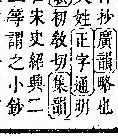 抄廣韻略也
人姓正字通明
初敎切集韻
宋史經典二
等謂之小鈔